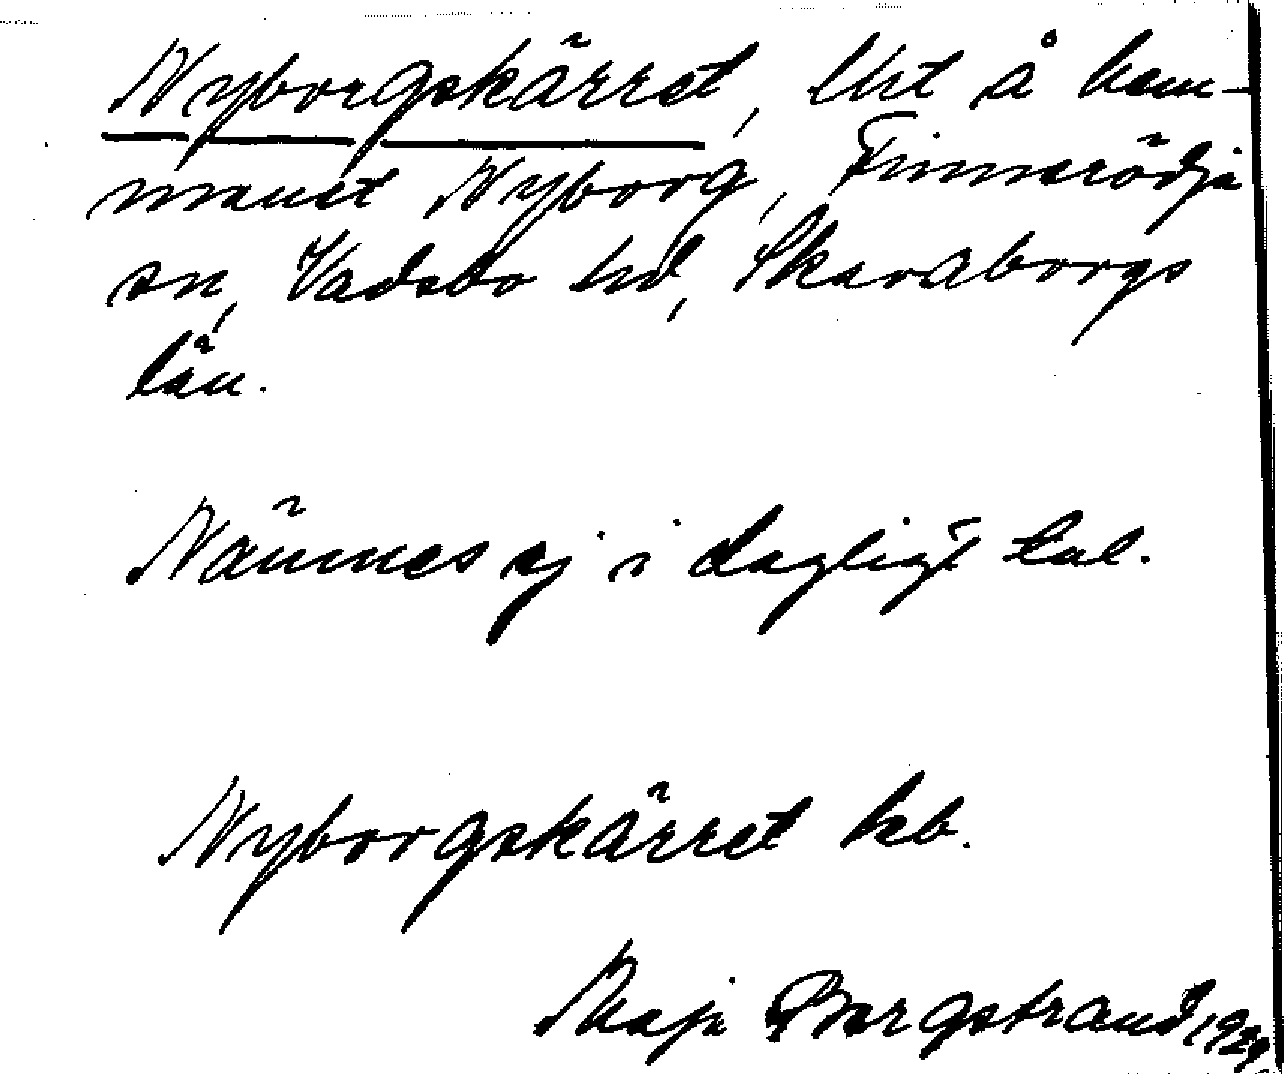 Nyborgskärret, lht å hem-
manet Nyborg, Finnerödja
sn, Vadsbo hd, Skaraborgs
län.
Nämnes ej i dagligt tal.
Nyborgskärret hsb.
Maja Bergstrand 1929